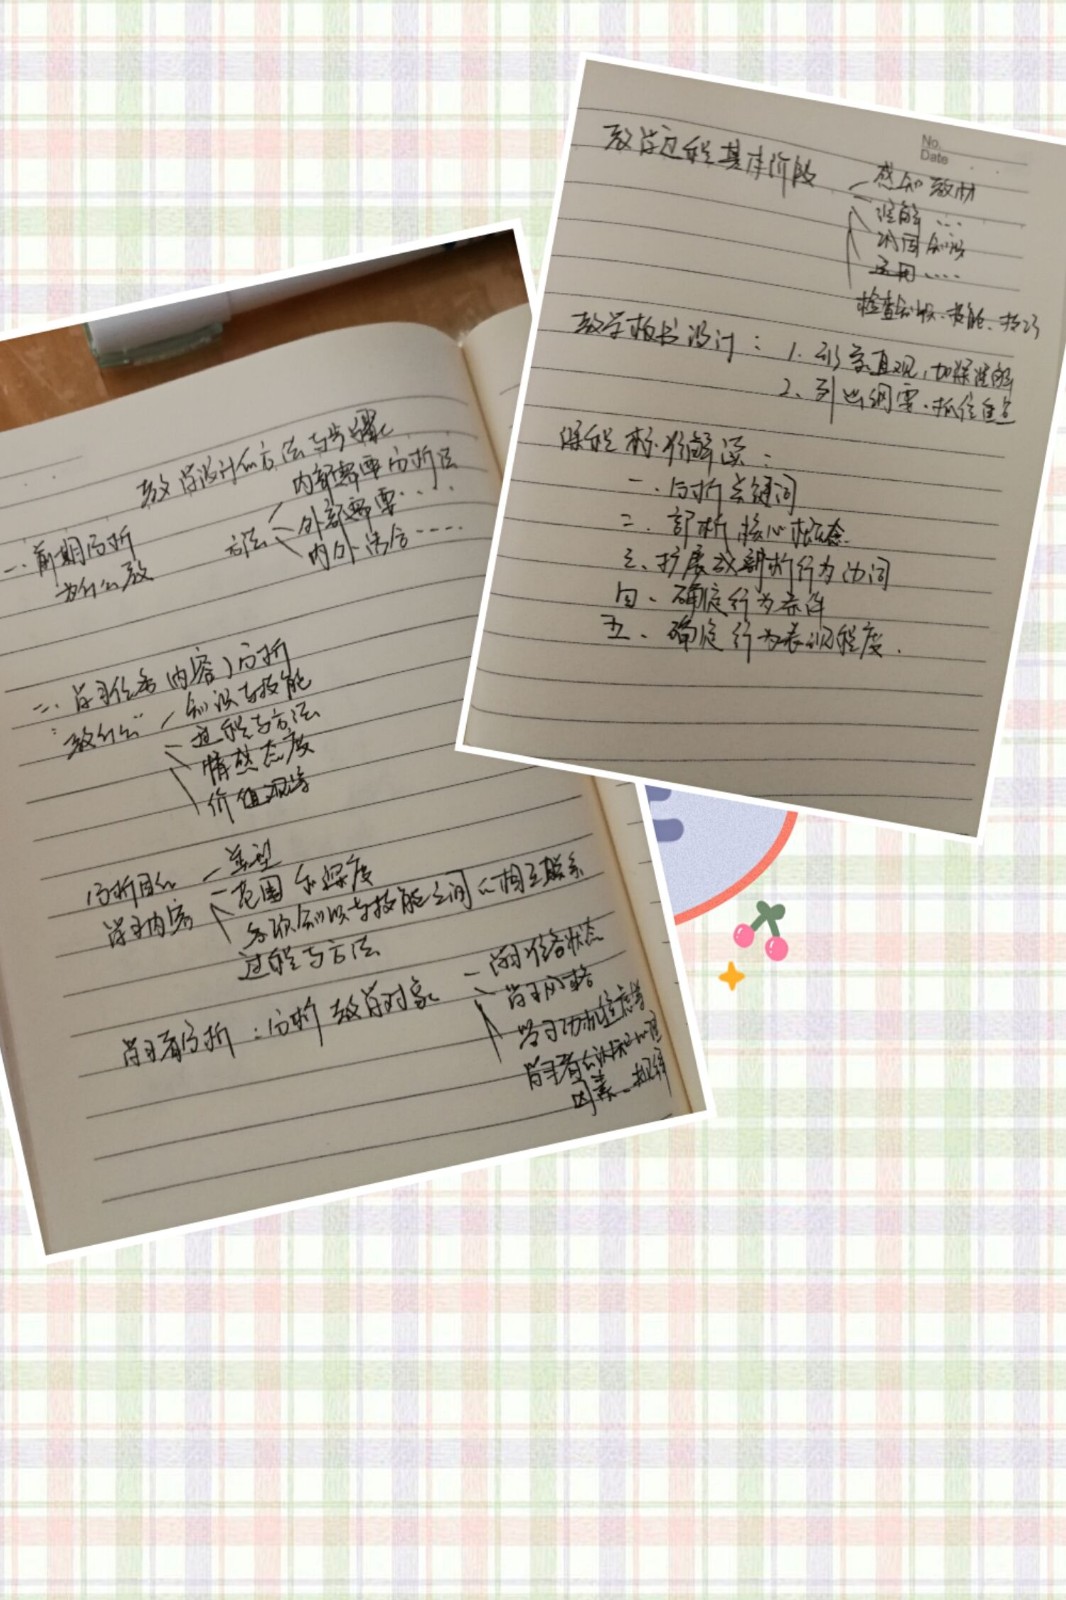 教学设计的方法与步骤
一、前期分析
为什么教
方法
内部需要分析法
外部需要....
内外结合....
二、学习任务(内容)分析
"教什么"
知识与技能
过程与方法
情感态度
价值观等
分析目的
学习内容
类型
范围和深度
各项知识与技能之间的相互联系
过程与方法
学习者分析:分析教学对象
学习准备状态
学习风格
学习动机
学习者
因素
教学过程基本阶段
No.
Date
感知教材
理解...
巩固知识
运用....
检查知识、技能、技巧
教学板书设计:1.形象直观,加深理解
2.列出纲要,抓住重点
课程标准解读:
一、分析关键词
二、剖析核心概念
三、扩展或剖析行为动词
四、确定行为条件
五、确定行为表现程度.